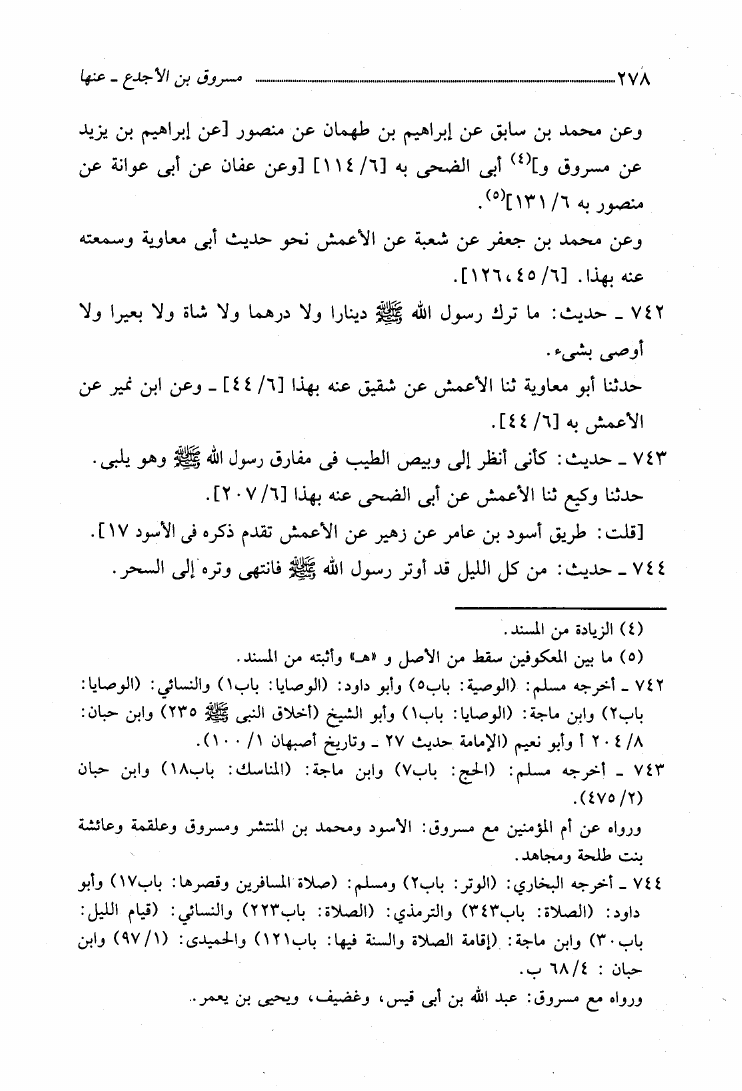 ٢٧٨ ــــــــــــــــــــــــــــــــــــــــ مسروق بن الأجدع ـ عنها
وعن محمد بن سابق عن إبراهيم بن طهمان عن منصور [عن إبراهيم بن يزيد
عن مسروق و](٤) أبى الضحى به [٦/ ١١٤] [وعن عفان عن أبى عوانة عن
منصور به ٦/ ١٣١](٥).
وعن محمد بن جعفر عن شعبة عن الأعمش نحو حديث أبى معاوية وسمعته
عنه بهذا. [٦/ ٤٥، ١٢٦].
٧٤٢ ـ حديث: ما ترك رسول الله ﷺ دينارا ولا درهما ولا شاة ولا بعيرا ولا
أوصى بشىء.
حدثنا أبو معاوية ثنا الأعمش عن شقيق عنه بهذا [٦/ ٤٤] ـ وعن ابن نمير عن
الأعمش به [٦/ ٤٤].
٧٤٣ ـ حديث: كأنى أنظر إلى وبيص الطيب فى مفارق رسول الله ﷺ وهو يلبى.
حدثنا وكيع ثنا الأعمش عن أبى الضحى عنه بهذا [٦/ ٢٠٧].
[قلت: طريق أسود بن عامر عن زهير عن الأعمش تقدم ذكره فى الأسود ١٧].
٧٤٤ ـ حديث: من كل الليل قد أوتر رسول الله ﷺ فانتهى وتره إلى السحر.
(٤) الزيادة من المسند.
(٥) ما بين المعكوفين سقط من الأصل و «هـ» وأثبته من المسند.
٧٤٢ ـ أخرجه مسلم: (الوصية: باب٥) وأبو داود: (الوصايا: باب١) والنسائي: (الوصايا:
باب٢) وابن ماجة: (الوصايا: باب١) وأبو الشيخ (أخلاق النبى ﷺ ٢٣٥) وابن حبان:
٨/ ٢٠٤ أ وأبو نعيم (الإمامة حديث ٢٧ ـ وتاريخ أصبهان ١/ ١٠٠).
٧٤٣ ـ أخرجه مسلم: (الحج: باب٧) وابن ماجة: (المناسك: باب١٨) وابن حبان
(٢/ ٤٧٥).
ورواه عن أم المؤمنين مع مسروق: الأسود ومحمد بن المنتشر ومسروق وعلقمة وعائشة
بنت طلحة ومجاهد.
٧٤٤ ـ أخرجه البخاري: (الوتر: باب٢) ومسلم: (صلاة المسافرين وقصرها: باب١٧) وأبو
داود: (الصلاة: باب٣٤٣) والترمذي: (الصلاة: باب٢٢٣) والنسائي: (قيام الليل:
باب٣٠) وابن ماجة: (إقامة الصلاة والسنة فيها: باب١٢١) والحميدى: (١/ ٩٧) وابن
حبان : ٤/ ٦٨ ب.
ورواه مع مسروق: عبد الله بن أبى قيس، وغضيف، ويحيى بن يعمر.